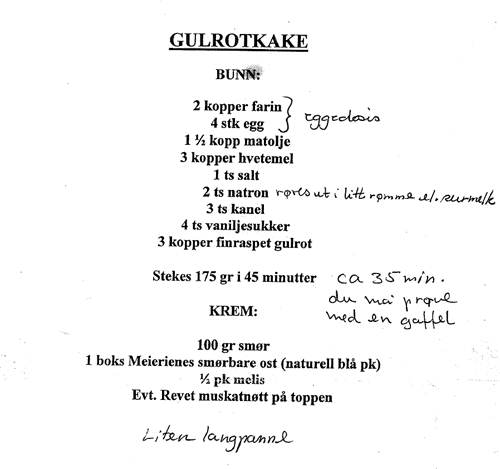 GULROTKAKE
BUNN:
2 kopper farin
4 stk egg } eggedosis
1 ½ kopp matolje
3 kopper hvetemel
1 ts salt
2 ts natron røres ut i litt rømme el. surmelk
3 ts kanel
4 ts vaniljesukker
3 kopper finraspet gulrot
Stekes 175 gr i 45 minutter ca 35 min.
du må prøve
med en gaffel
KREM:
100 gr smør
1 boks Meierienes smørbare ost (naturell blå pk)
½ pk melis
Evt. Revet muskatnøtt på toppen
Liten langpanne